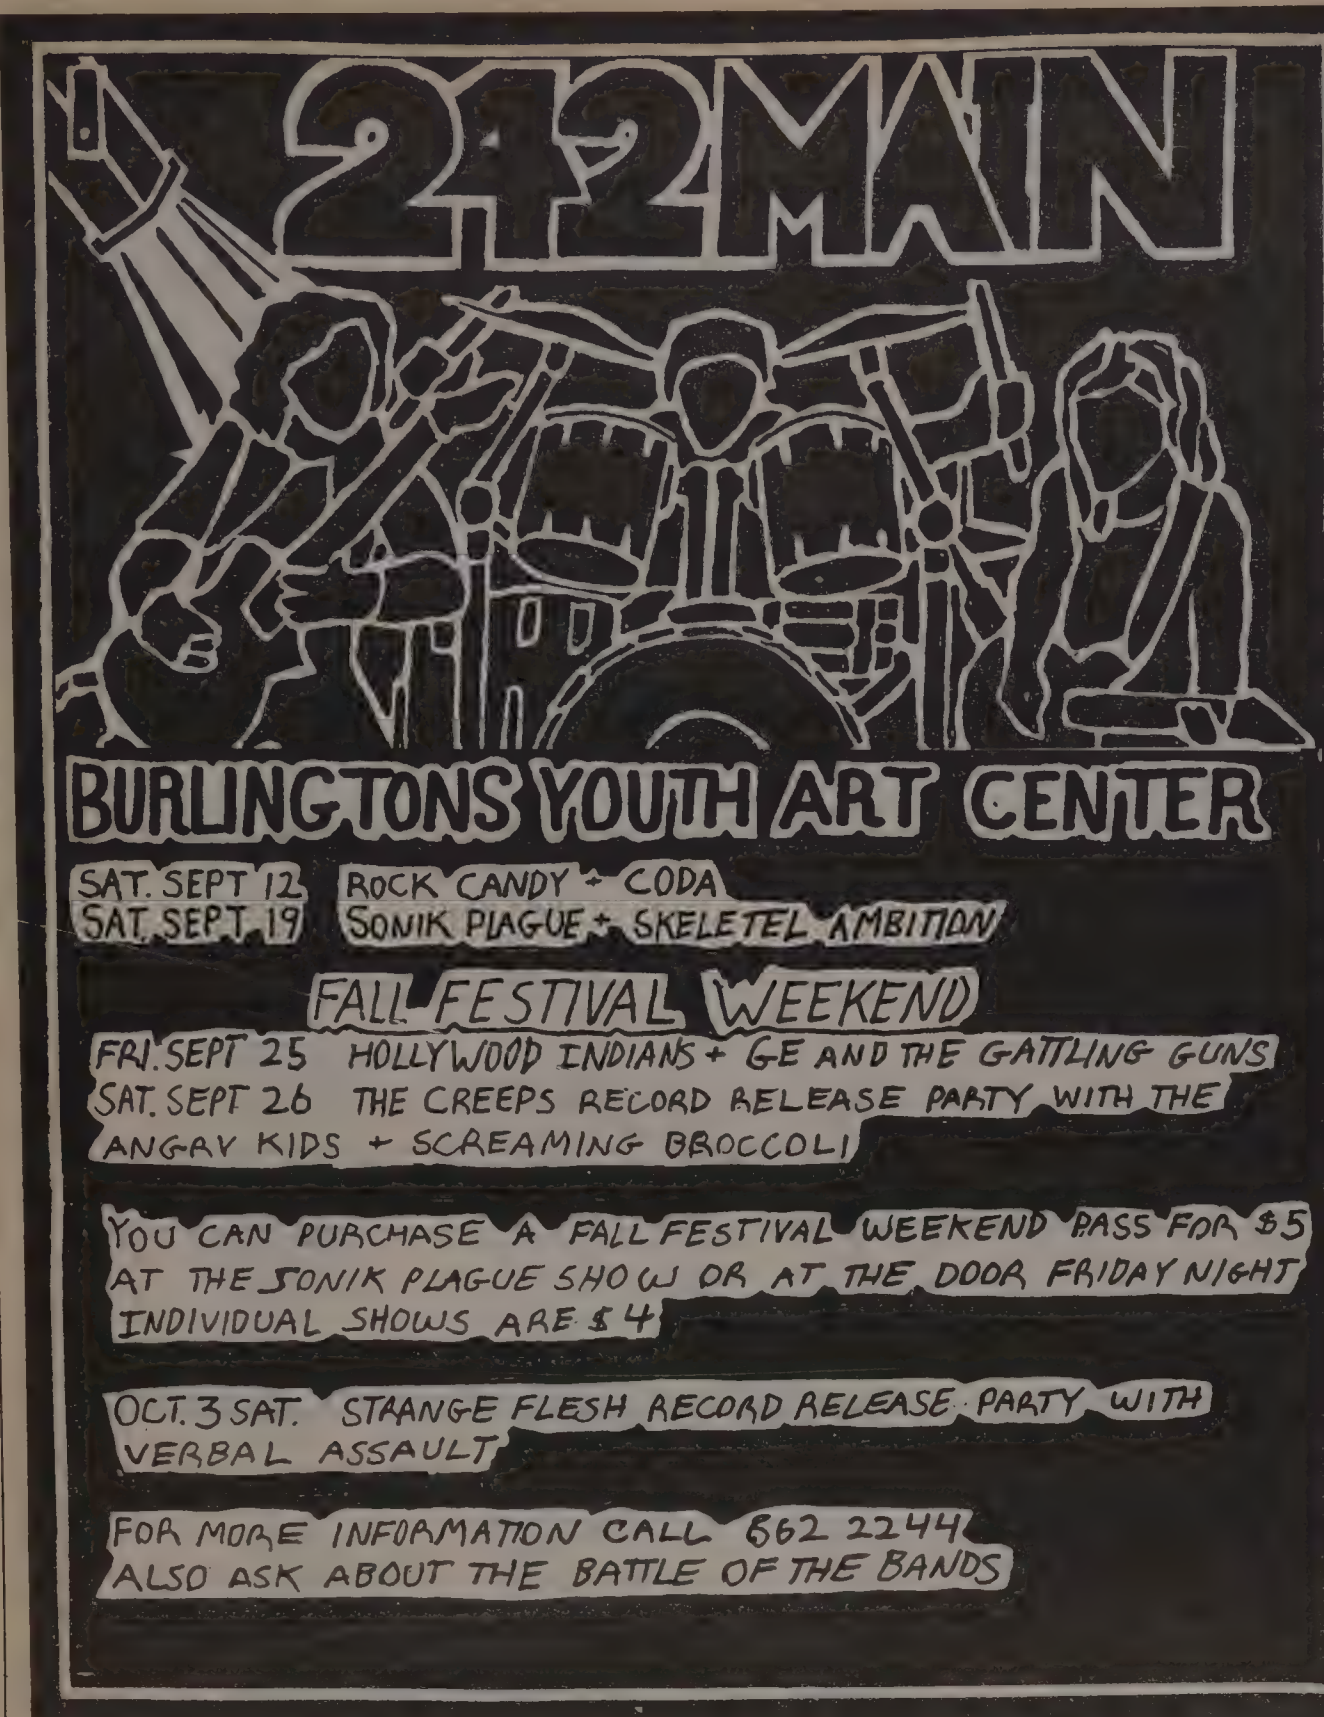 242 MAIN
BURLINGTONS YOUTH ART CENTER
SAT. SEPT 12 ROCK CANDY + CODA
SAT. SEPT. 19 SONIK PLAGUE + SKELETEL AMBITION
FALL FESTIVAL WEEKEND
FRI. SEPT 25 HOLLYWOOD INDIANS + GE AND THE GATTLING GUNS
SAT. SEPT 26 THE CREEPS RECORD RELEASE PARTY WITH THE
ANGRY KIDS + SCREAMING BROCCOLI
YOU CAN PURCHASE A FALL FESTIVAL WEEKEND PASS FOR $5
AT THE SONIK PLAGUE SHOW OR AT THE DOOR FRIDAY NIGHT
INDIVIDUAL SHOWS ARE $4
OCT. 3 SAT. STRANGE FLESH RECORD RELEASE PARTY WITH
VERBAL ASSAULT
FOR MORE INFORMATION CALL 862 2244
ALSO ASK ABOUT THE BATTLE OF THE BANDS